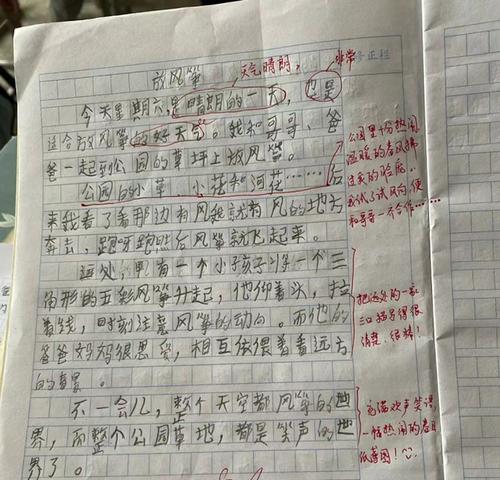 放风筝
天气晴朗，
非常
修正栏
今天星期六，是晴朗的一天，也是
适合放风筝的好天气。我和哥哥、爸
爸一起到公园的草坪上放风筝。
公园的小草、小花和河花……后
来我看了看那边有风我就朝有风的地方
奔去，跑呀跑然后风筝就飞起来。
远处，有一个小孩子将一个三
角形的五彩风筝升起，他仰着头，拉
着线，时刻注意风筝的动向。而他的
爸爸妈妈很恩爱，相互依偎着看远方
的春景。
不一会儿，整个天空都风筝的世
界，而整个公园草地，都是笑声的世
界了。
公园里十分热闹
温暖的春风拂
过我的脸庞。
我试了试风向，便
和哥哥一个合作……
把远处的一家
三口描写得很
清楚，很棒！
充满欢声笑语，
一幅热闹的春日
纸鸢图！